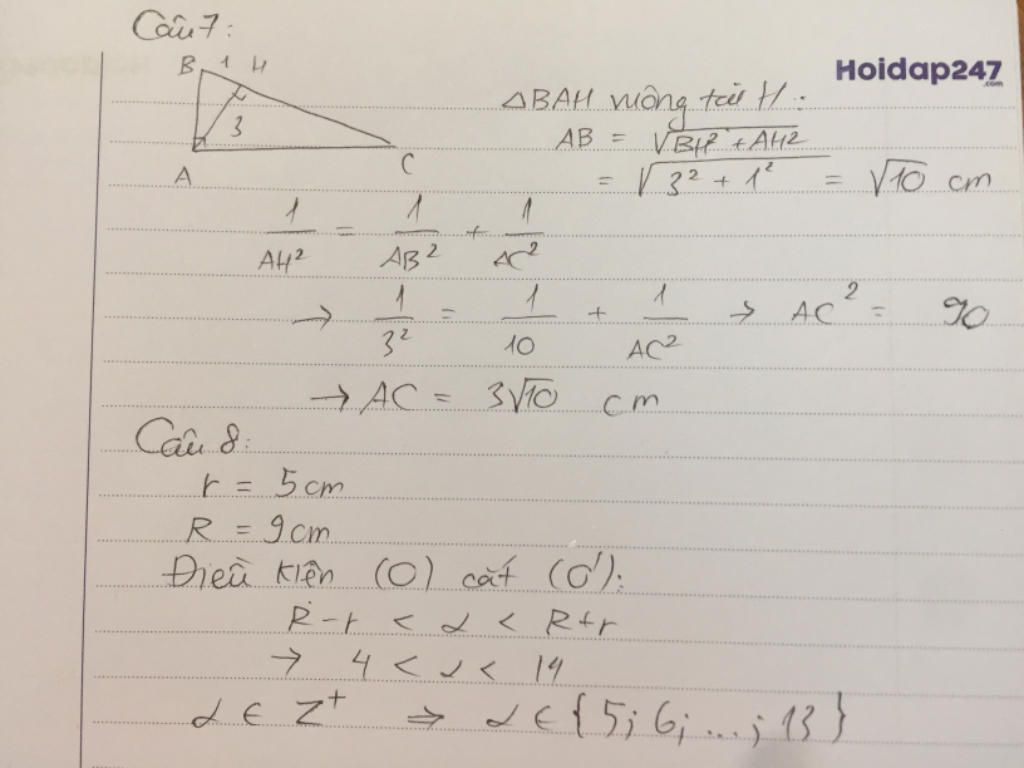 Câu 7:
B 1 H
3
A
C
Hoidap247
.com
△BAH vuông tại H:
AB = √(BH² + AH²)
= √(3² + 1²) = √10 cm
1/AH² = 1/AB² + 1/AC²
→ 1/3² = 1/10 + 1/AC² → AC² = 90
→ AC = 3√10 cm
Câu 8:
r = 5cm
R = 9cm
Điều kiện (O) cắt (O'):
R - r < d < R + r
→ 4 < d < 14
d ∈ Z⁺ ⇒ d ∈ {5; 6; ...; 13}